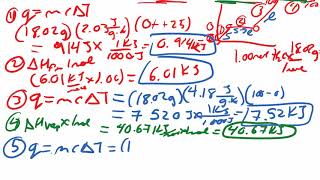 ① q = mcΔT
(18.02g)(2.03 J/g·k)(0++25)
= 914J x 1KJ/1000J = 0.914KJ
② ΔHfus x mol
(6.01 KJ x 1.00) = 6.01KJ
③ q = mcΔT = (18.02g)(4.18 J/g·k)(100-0)
= 7520J x 1KJ/1000J = 7.52KJ
④ ΔHvap x mol = 40.67KJ = 40.67KJ
⑤ q = mcΔT = (1
1.00mol 18.02g